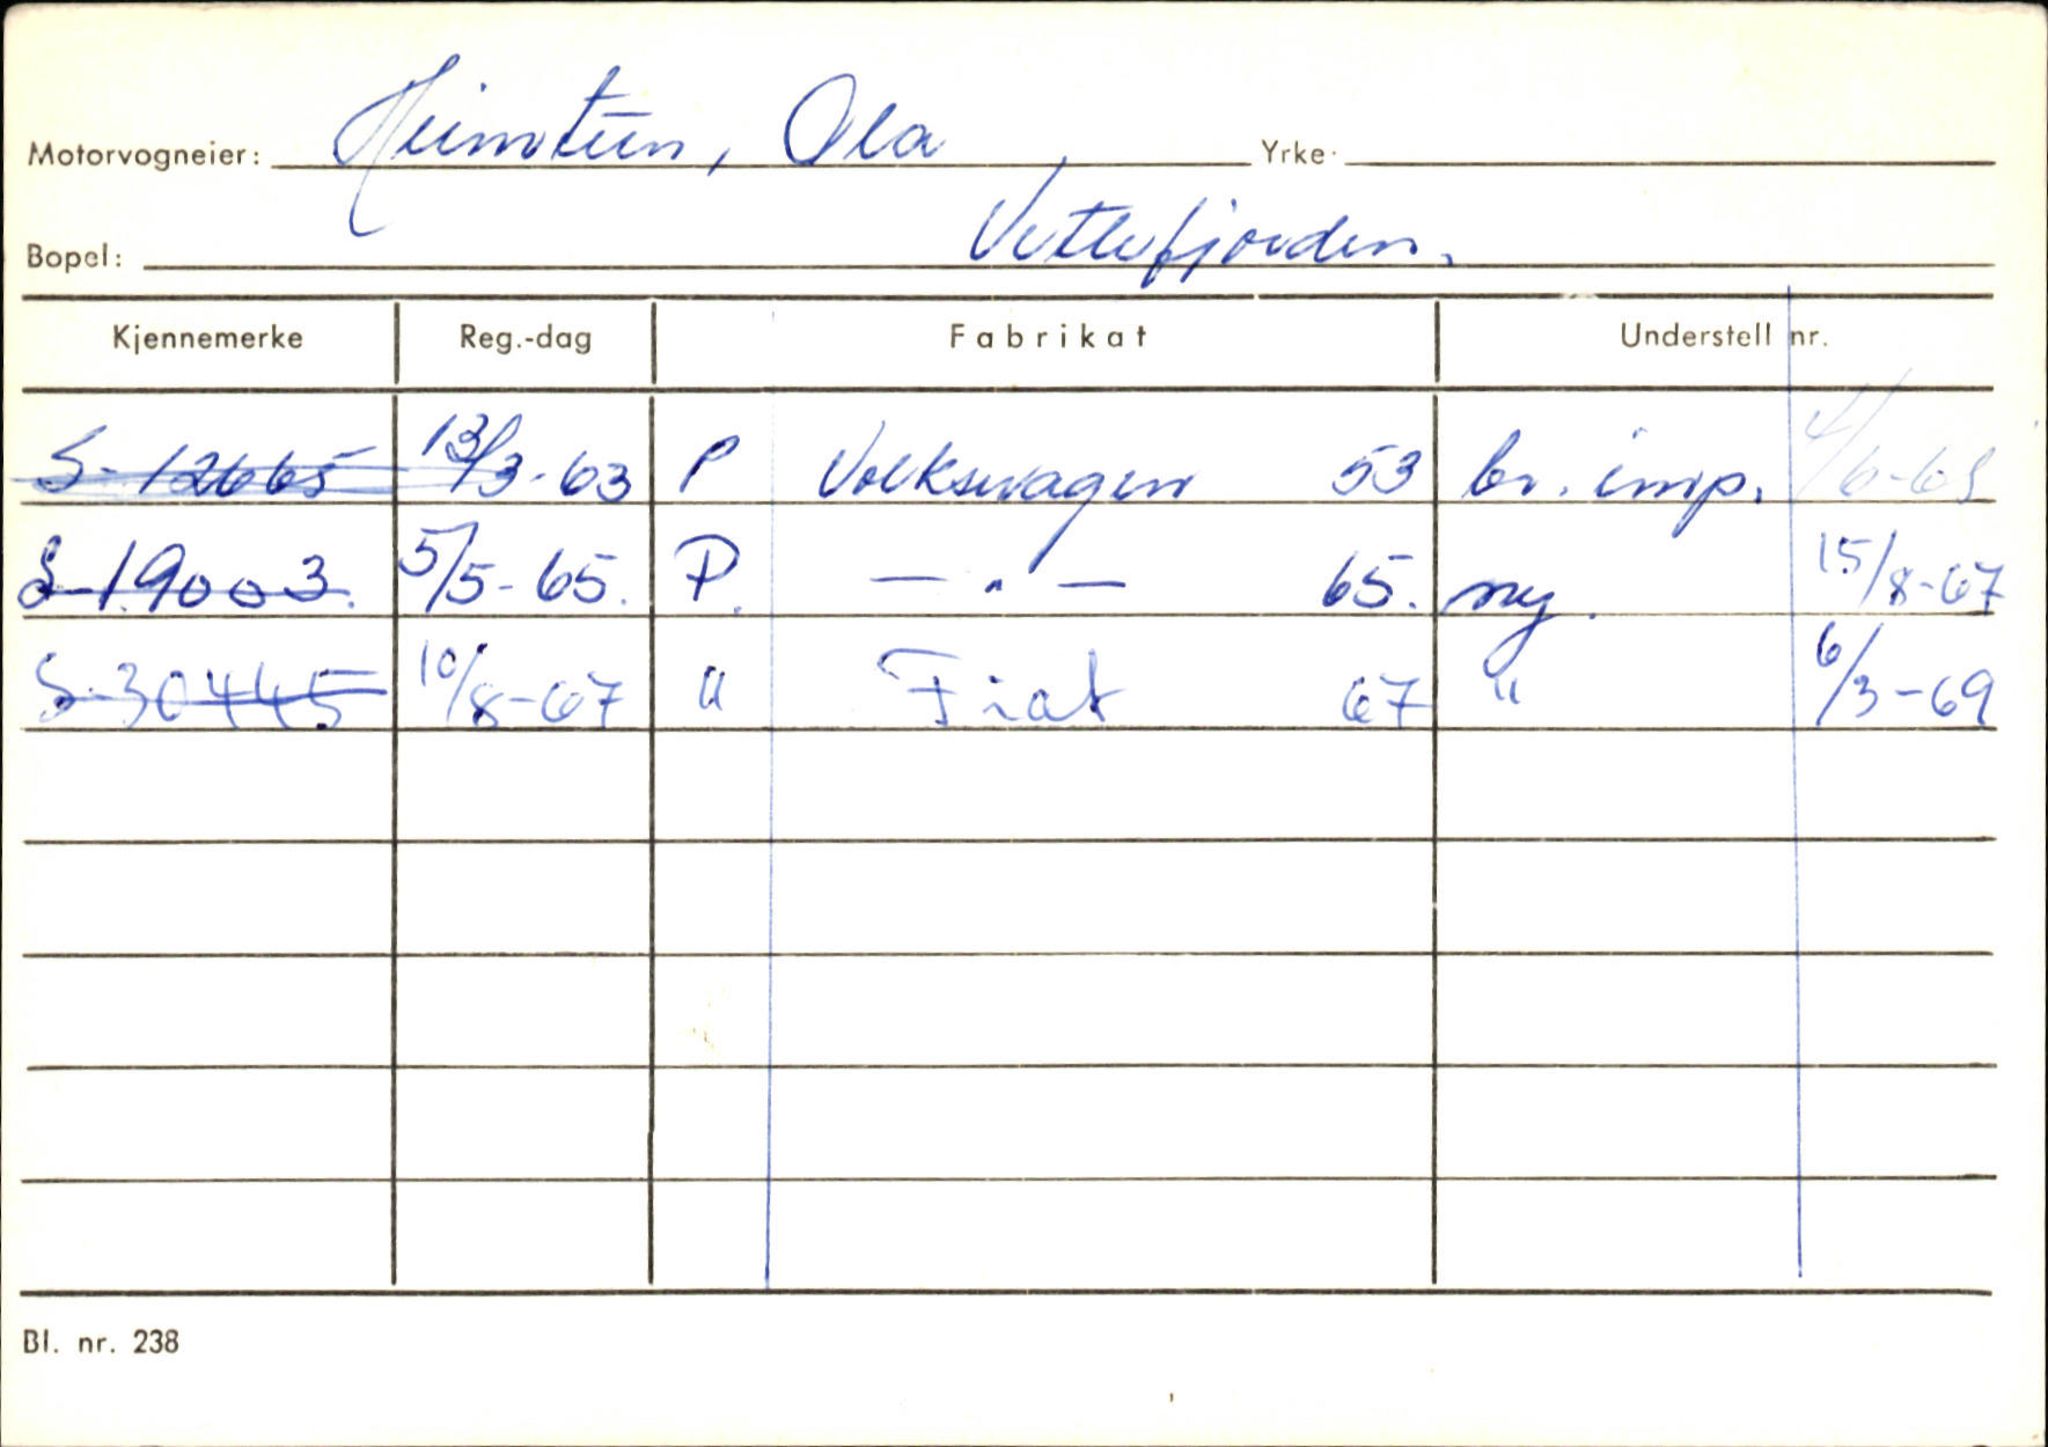 Motorvogneier: Heimtun, Ola Yrke:
Bopel: Vetlefjorden.
Kjennemerke Reg.-dag Fabrikat Understell nr.
S-12665 13/3-63 P Volkswagen 53 br. imp. 4/6-65
S-19003. 5/5-65. P. — " — 65. ny. 15/8-67
S-30445 10/8-67 " Fiat 67 " 6/3-69
Bl. nr. 238